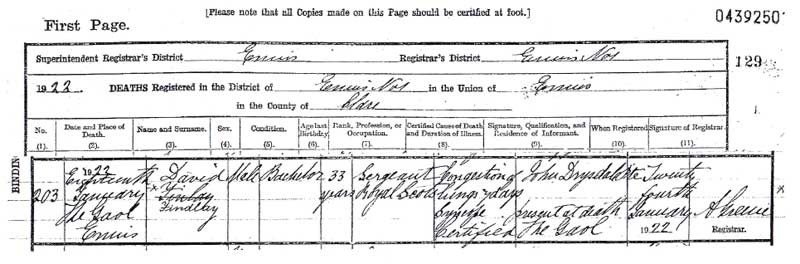 [Please note that all Copies made on this Page should be certified at foot.]
First Page.
0439250
Superintendent Registrar's District Ennis Registrar's District Ennis No 1
129
1922. DEATHS Registered in the District of Ennis No 1 in the Union of Ennis
in the County of Clare
No. (1). Date and Place of Death. (2). Name and Surname. (3). Sex. (4). Condition. (5). Age last Birthday. (6). Rank, Profession, or Occupation. (7). Certified Cause of Death and Duration of Illness. (8). Signature, Qualification, and Residence of Informant. (9). When Registered. (10). Signature of Registrar. (11).
BINDIN
203
1922
Eighteenth
January
The Gaol
Ennis
David
* Finlay
Findlay
Male
Bachelor
33
years
Sergeant
Royal Scots
Congestion of
lungs 2 days
Syncope
Certified
John Drysdale
present at death
The Gaol
Twenty
fourth
January
1922
Registrar.